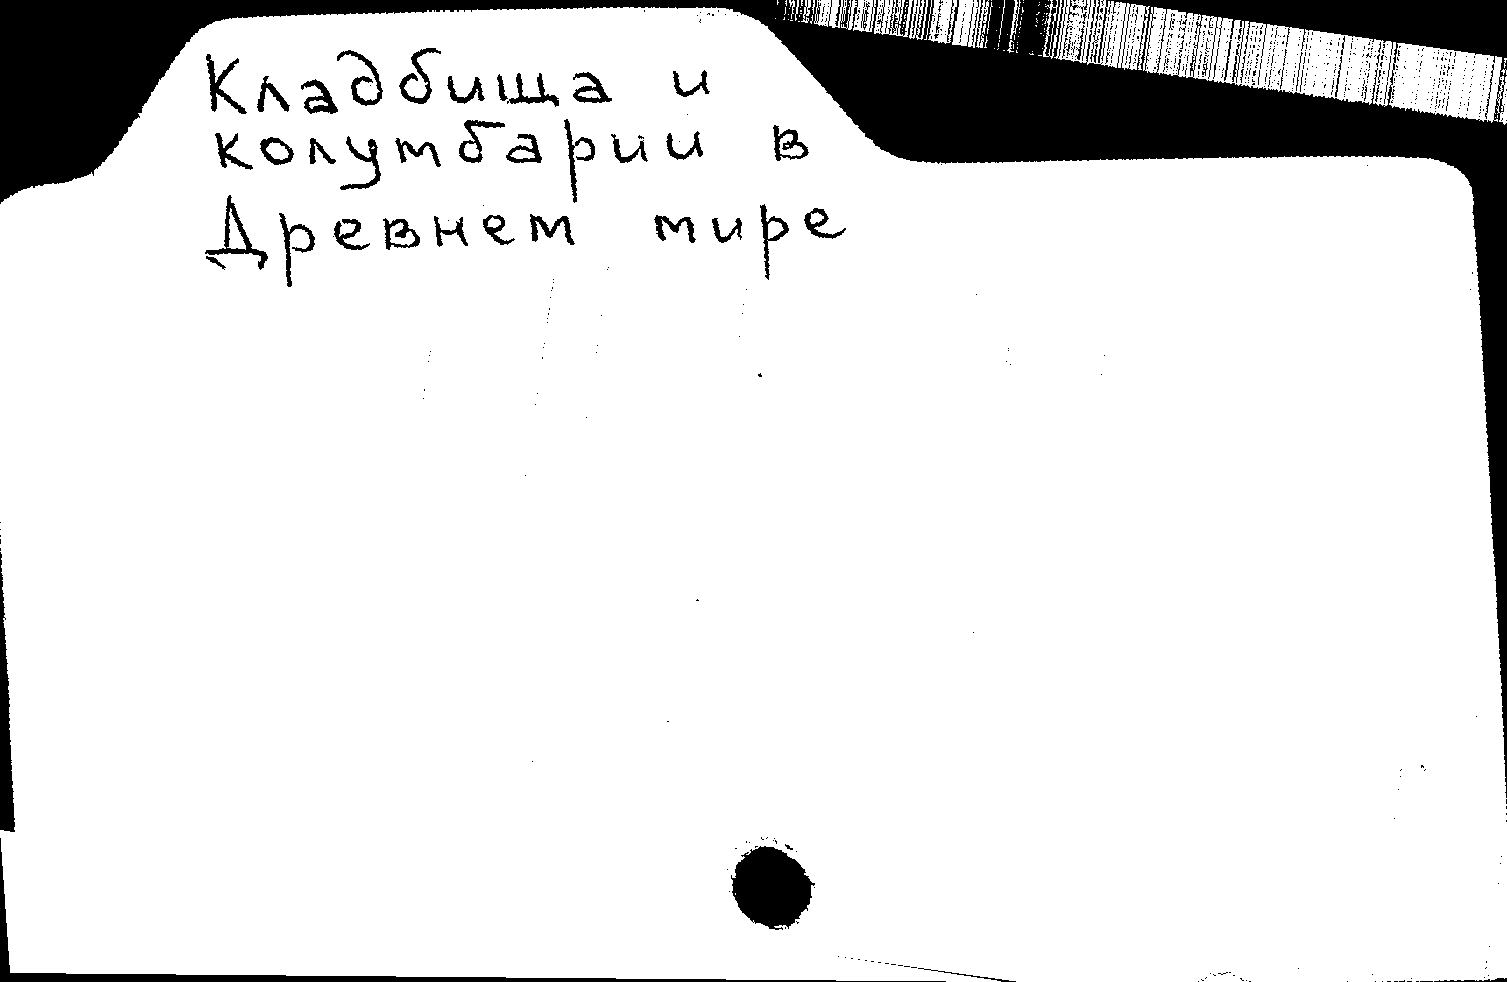 Кладбища и
колумбарии в
Древнем мире